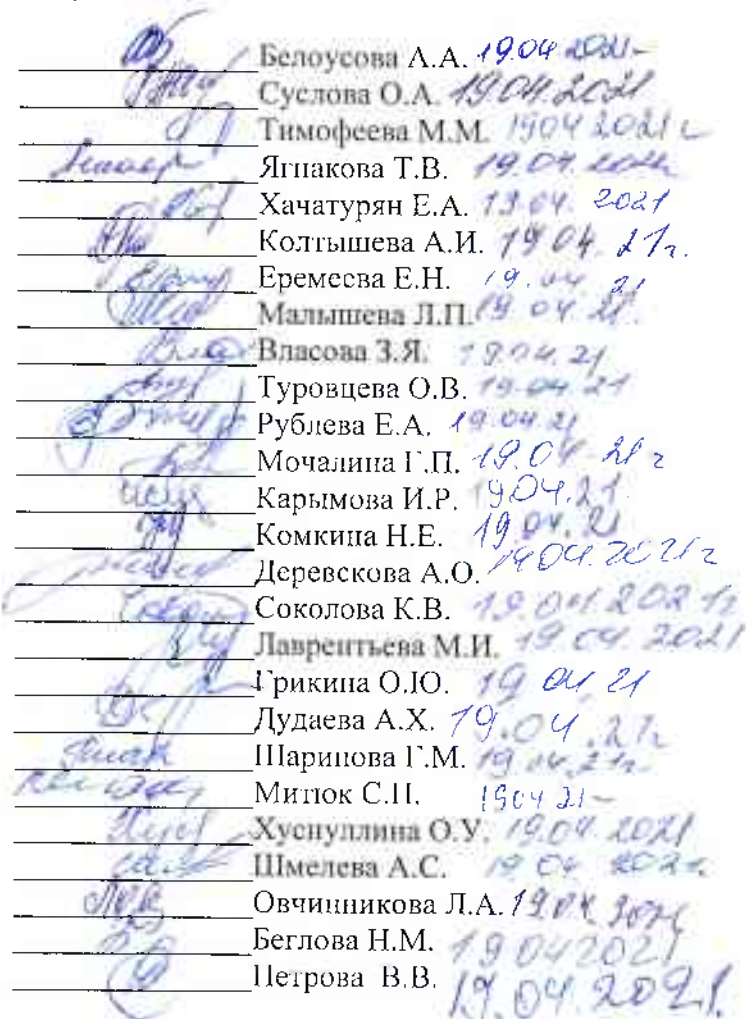 Белоусова А.А. 19.04 2021
Суслова О.А. 19.04.2021
Тимофеева М.М. 19 04 2021 г
Ягнакова Т.В. 19.04. 2021
Хачатурян Е.А. 19.04. 2021
Колтышева А.И. 19 04. 21г.
Еремеева Е.Н. 19.04 21
Малышева Л.П. 19 04 21.
Власова З.Я. 19.04.21
Туровцева О.В. 19.04 21
Рублева Е.А. 19.04 21
Мочалина Г.П. 19.04 21 г
Карымова И.Р. 19 04.21
Комкина Н.Е. 19.04.21
Деревскова А.О. 19 04.2021г
Соколова К.В. 19.04.2021г
Лаврентьева М.И. 19 04. 2021
Грикина О.Ю. 19 04 21
Дудаева А.Х. 19.04.21г
Шарипова Г.М. 19 04.21г.
Митюк С.П. 19 04 21
Хуснуллина О.У. 19.04.2021
Шмелева А.С. 19 04 2021.
Овчинникова Л.А. 19.04. 2021
Беглова Н.М. 19 04 2021
Петрова В.В. 19.04.2021.